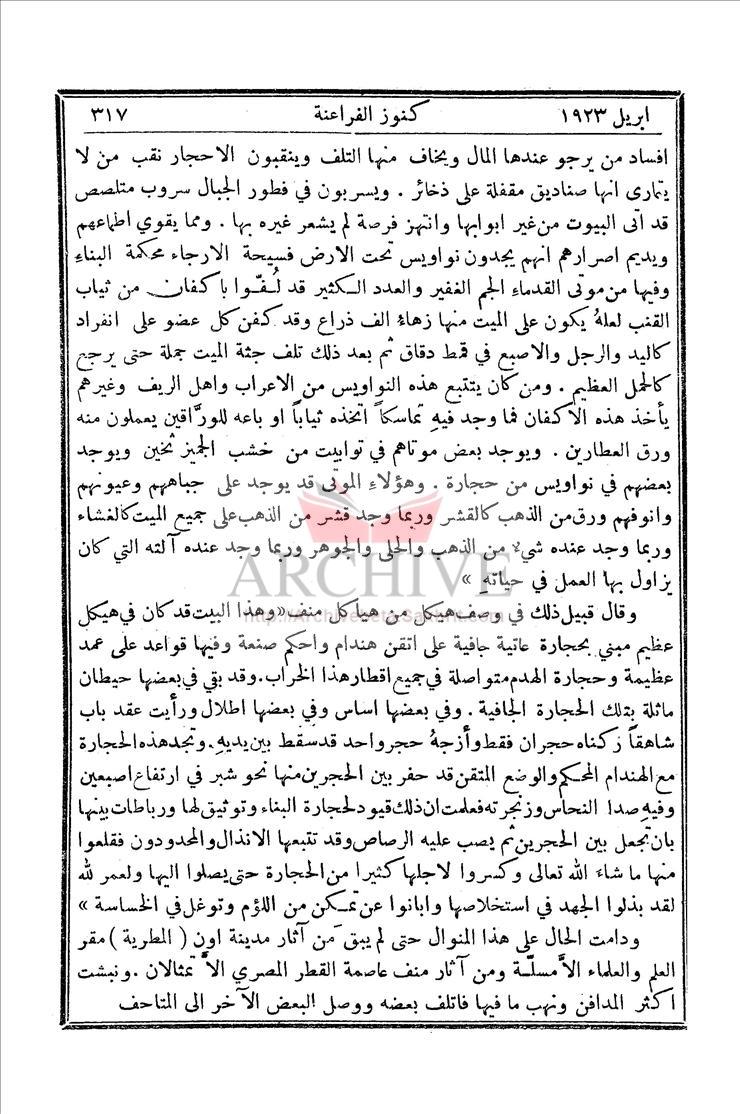 ابريل ١٩٢٣ كنوز الفراعنة ٣١٧
افساد من يرجو عندها المال ويخاف منها التلف وينقبون الاحجار نقب من لا
يتمارى انها صناديق مقفلة على ذخائر . ويسربون في فطور الجبال سروب متلصص
قد اتى البيوت من غير ابوابها وانتهز فرصة لم يشعر غيره بها . ومما يقوي اطماعهم
ويديم اصرارهم انهم يجدون نواويس تحت الارض فسيحة الارجاء محكمة البناءِ
وفيها من موتى القدماءِ الجم الغفير والعدد الكثير قد لُفّوا باكفان من ثياب
القنب لعلهُ يكون على الميت منها زهاءُ الف ذراع وقد كفن كل عضو على انفراد
كاليد والرجل والاصبع في قمط دقاق ثم بعد ذلك تلف جثة الميت جملة حتى يرجع
كالحمل العظيم . ومن كان يتتبع هذه النواويس من الاعراب واهل الريف وغيرهم
يأخذ هذه الاكفان فما وجد فيهِ تماسكاً اتخذه ثياباً او باعه للورَّاقين يعملون منه
ورق العطارين . ويوجد بعض موتاهم في توابيت من خشب الجميز ثخين ويوجد
بعضهم في نواويس من حجارة . وهؤلاءِ الموتى قد يوجد على جباههم وعيونهم
وانوفهم ورق من الذهب كالقشر وربما وجد قشر من الذهب على جميع الميت كالغشاء
وربما وجد عنده شيءٌ من الذهب والحلى والجوهر وربما وجد عنده آلته التي كان
يزاول بها العمل في حياتهِ »
وقال قبيل ذلك في وصف هيكل من هياكل منف « وهذا البيت قد كان في هيكل
عظيم مبني بحجارة عاتية جافية على اتقن هندام واحكم صنعة وفيها قواعد على عمد
عظيمة وحجارة الهدم متواصلة في جميع اقطار هذا الخراب . وقد بقي في بعضها حيطان
ماثلة بتلك الحجارة الجافية . وفي بعضها اساس وفي بعضها اطلال ورأيت عقد باب
شاهقاً ركناه حجران فقط وأزجهُ حجر واحد قد سقط بين يديهِ . وتجد هذه الحجارة
مع الهندام المحكم والوضع المتقن قد حفر بين الحجرين منها نحو شبر في ارتفاع اصبعين
وفيهِ صدا النحاس وزنجرته فعلمت ان ذلك قيود لحجارة البناء وتوثيق لها ورباطات بينها
بان تجعل بين الحجرين ثم يصب عليه الرصاص وقد تتبعها الانذال والمحدودون فقلعوا
منها ما شاءَ الله تعالى وكسروا لاجلها كثيرا من الحجارة حتى يصلوا اليها ولعمر لله
لقد بذلوا الجهد في استخلاصها وابانوا عن تمكن من اللؤم وتوغل في الخساسة »
ودامت الحال على هذا المنوال حتى لم يبقَ من آثار مدينة اون ( المطرية ) مقر
العلم والعلماء الاَّ مسلّة ومن آثار منف عاصمة القطر المصري الاَّ تمثالان . ونبشت
اكثر المدافن ونهب ما فيها فاتلف بعضه ووصل البعض الآخر الى المتاحف
ARCHIVE